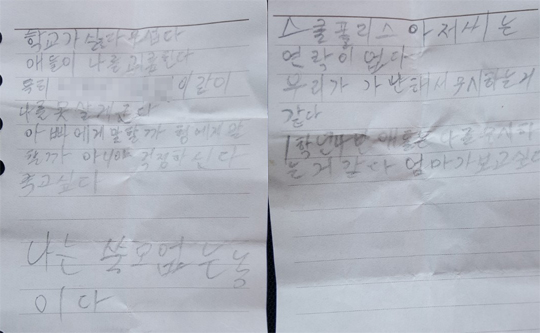 학교가 싫다 무섭다
애들이 나를 괴롭힌다
특히 이 같이
나를 못살게 군다
아빠에게 말할까 형에게 말
할까 아니야 걱정하신다
죽고싶다
나는 쓸모없는 놈
이다
스쿨폴리스 아저씨는
연락이 없다
우리가 가난해서 무시하는거
같다
1학년 애들도 나를 무시하
는거 같다 엄마가 보고싶다